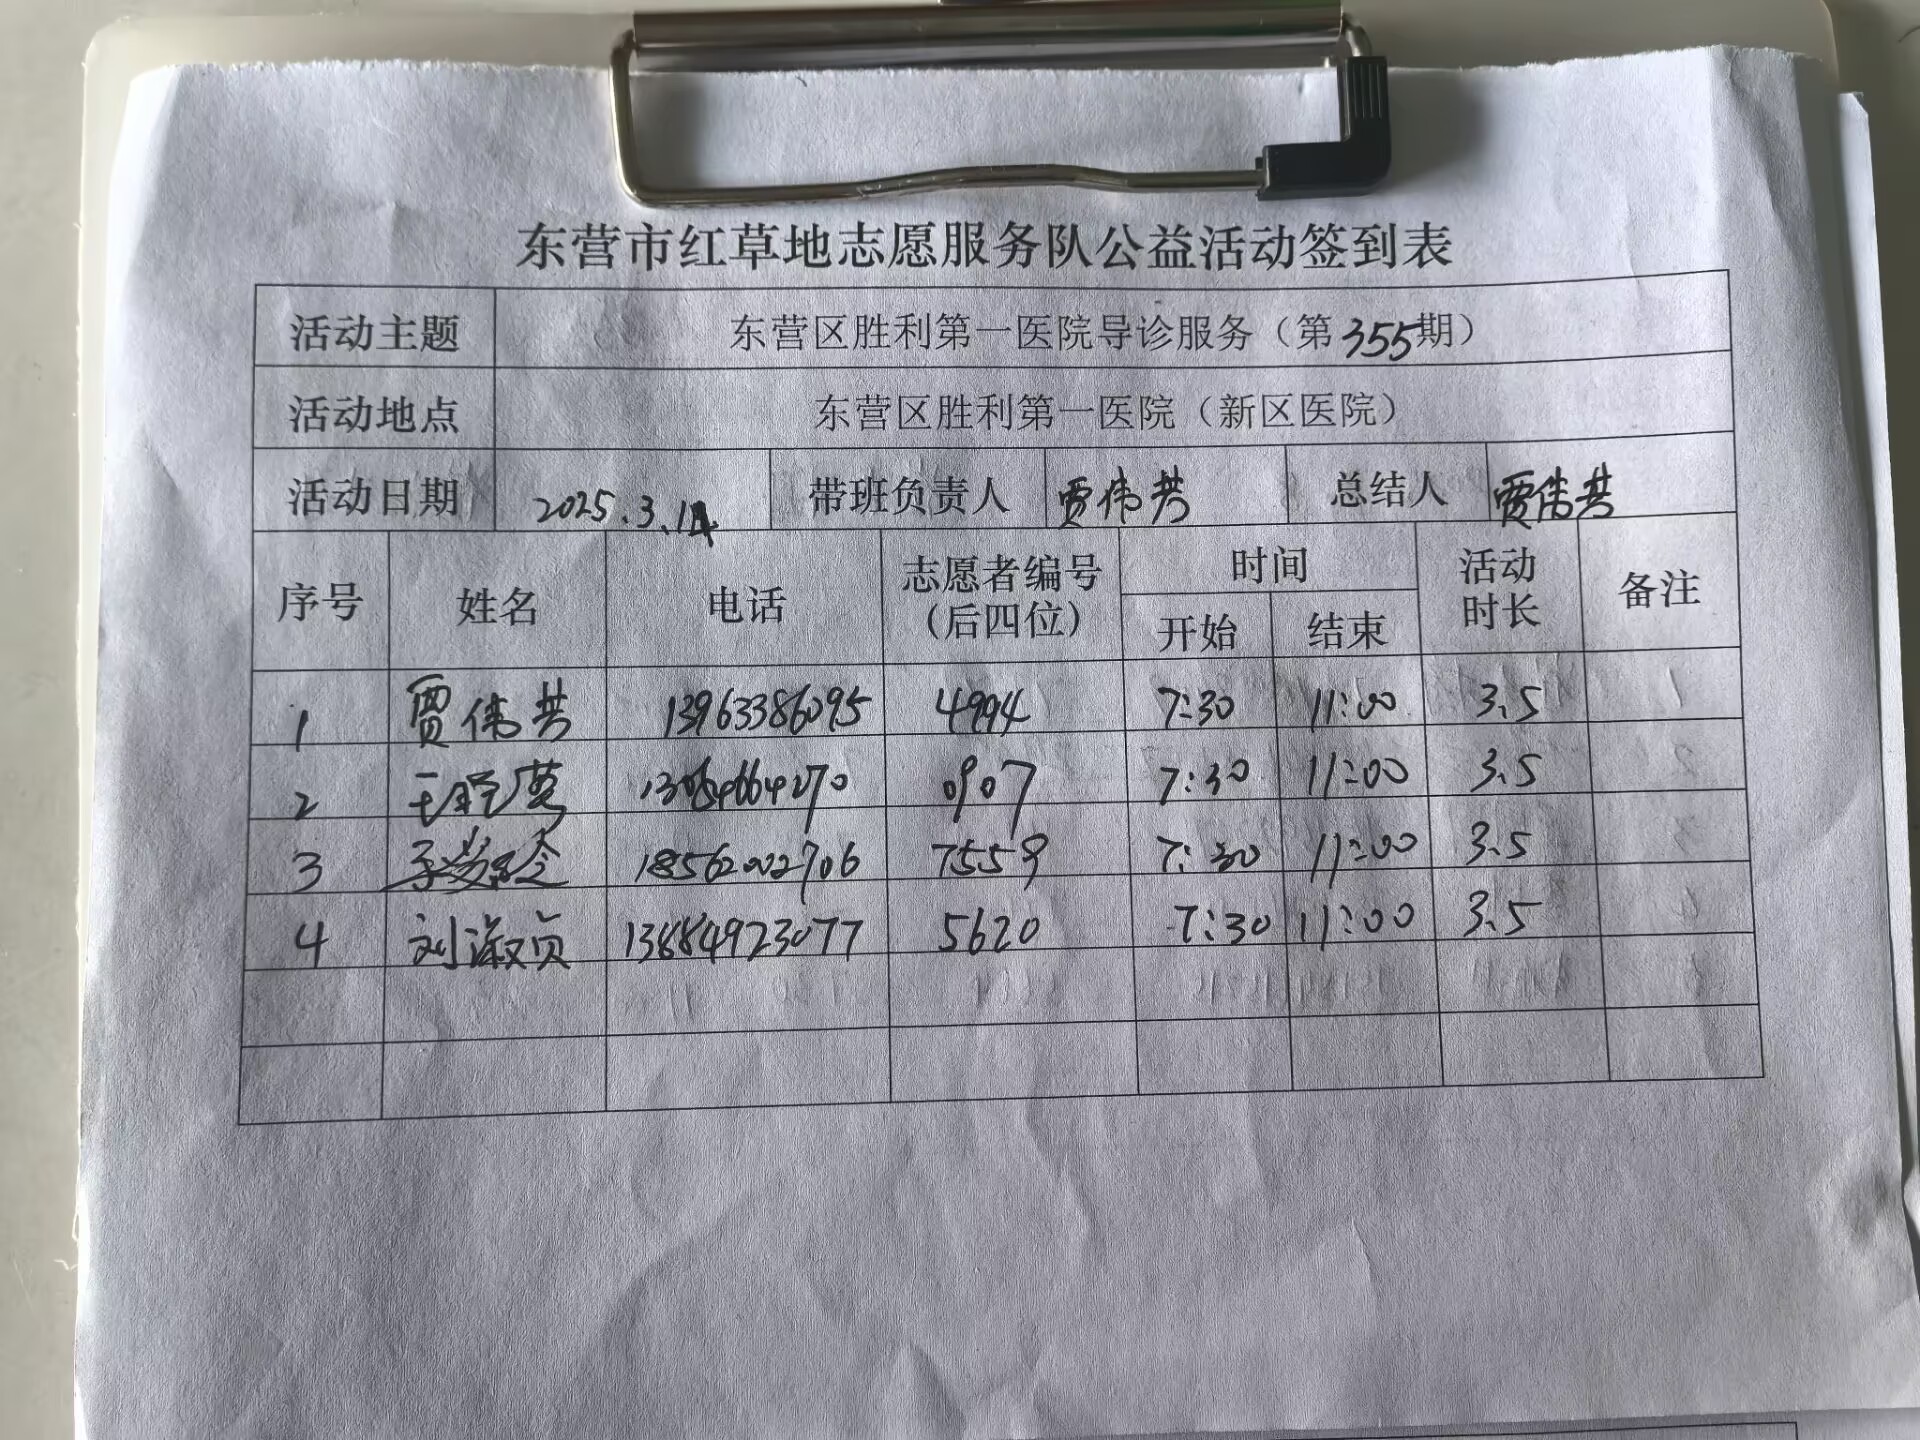 东营市红草地志愿服务队公益活动签到表
活动主题 东营区胜利第一医院导诊服务（第355期）
活动地点 东营区胜利第一医院（新区医院）
活动日期 2025.3.14 带班负责人 贾伟芸 总结人 贾伟芸
序号 姓名 电话 志愿者编号（后四位） 时间 开始 结束 活动时长 备注
1 贾伟芸 13963386095 4994 7:30 11:00 3.5
2 0907 7:30 11:00 3.5
3 18562002706 7559 7:30 11:00 3.5
4 刘淑贞 13884923077 5620 7:30 11:00 3.5